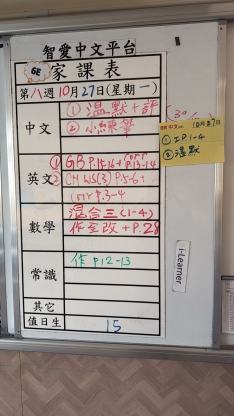 智愛中文平台
6E
家課表
第八週10月27日(星期一)
中文
① 溫默+評
② 小練筆
英文
① GB P.15-16+ P.13-14
② CH WS(3) P.5-6+
P.3-4
數學
混合三(1-4)
作全改+P.28
常識
作 p12-13
其它
值日生
15
10月27日
① 工P.1-4
② 溫默
i-Learner